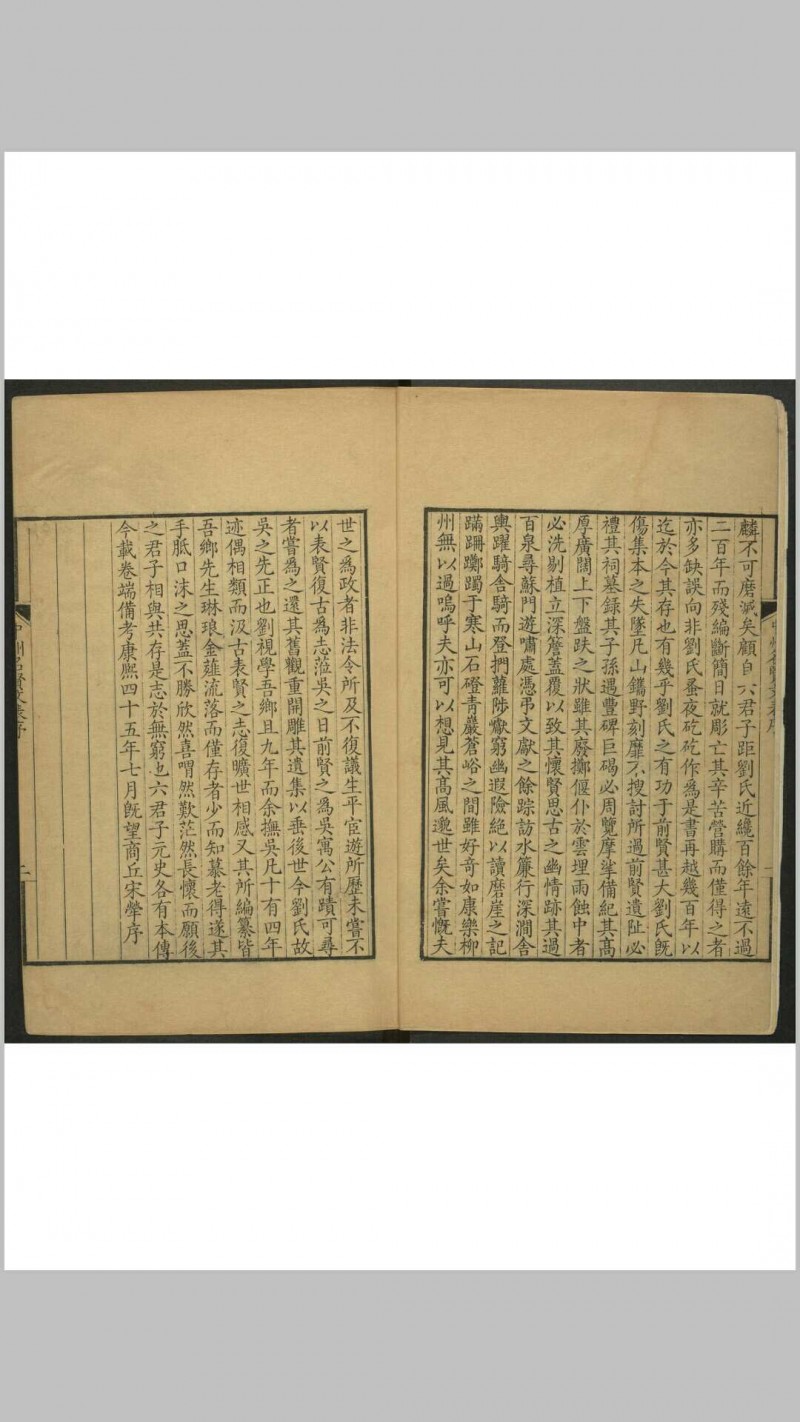 麟不可磨滅矣顧自六君子距劉氏近纔百餘年遠不過
二百年而殘編斷簡日就彫亡其辛苦營購而僅得之者
亦多缺誤向非劉氏蚤夜矻矻作爲是書再越幾百年以
迄於今其存也有幾乎劉氏之有功于前賢甚大劉氏旣
傷集本之失墜凡山鐫野刻靡不搜討所過前賢遺阯必
禮其祠墓錄其子孫遇豐碑巨碣必周覽摩挲備紀其高
厚廣闊上下盤趺之狀雖其廢擲偃仆於雲埋雨蝕中者
必洗剔植立深簷蓋覆以致其懷賢思古之幽情跡其過
百泉尋蘇門遊嘯處憑弔文獻之餘踪訪水簾行深澗舍
輿躍騎舍騎而登捫蘿陟巘窮幽遐險絶以讀磨崖之記
蹣跚躑躅于寒山石磴青巖蒼峪之間雖好奇如康樂柳
州無以過嗚呼夫亦可以想見其高風邈世矣余嘗慨夫
世之爲政者非法令所及不復議生平宦遊所歷未嘗不
以表賢復古爲志蒞吳之日前賢之爲吳寓公有蹟可尋
者嘗爲之還其舊觀重開雕其遺集以垂後世今劉氏故
吳之先正也劉視學吾鄉且九年而余撫吳凡十有四年
迹偶相類而汲古表賢之志復曠世相感又其所編纂皆
吾鄉先生琳琅金薤流落而僅存者少而知慕老得遂其
手胝口沫之思蓋不勝欣然喜喟然歎茫然長懷而願後
之君子相與共存是志於無窮也六君子元史各有本傳
今載卷端備考康熙四十五年七月旣望商丘宋犖序
中州名賢文表序